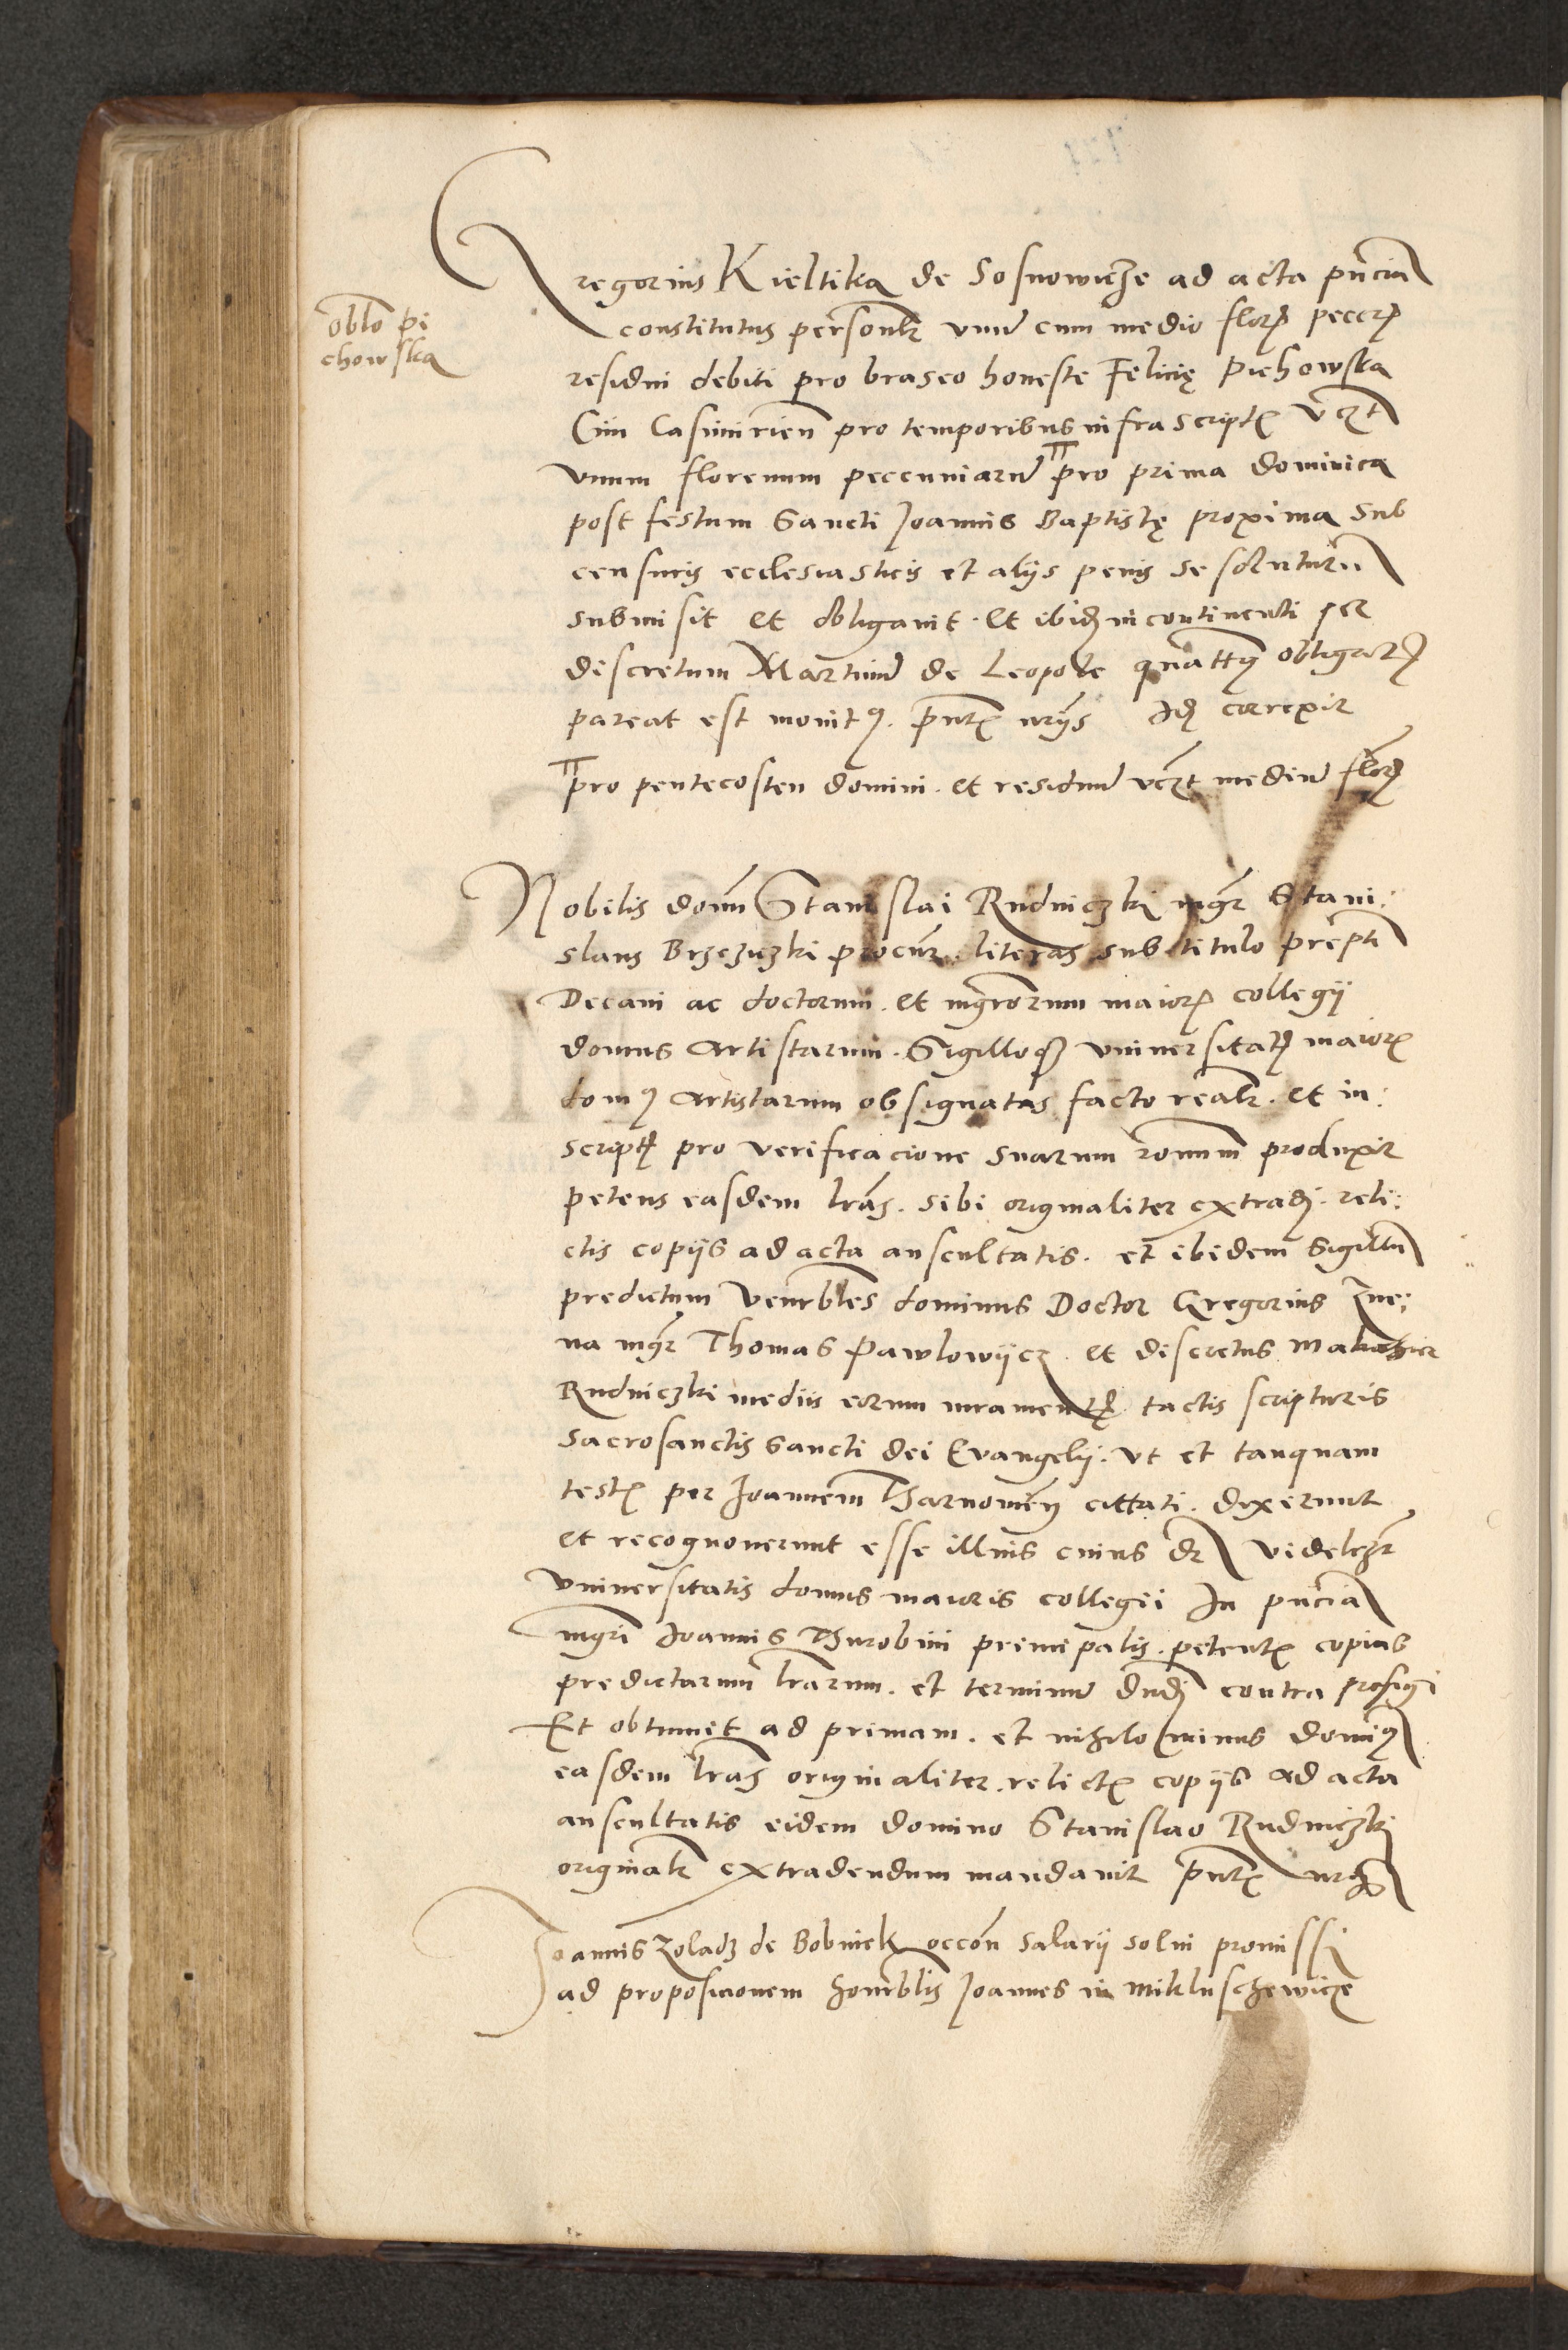 oblō pi
chowska
Gregorius Kieltika de Sosnowicze ad acta pn̄cia
constitutus personlr vnū cum medio florꝫ peccꝫ
residui debiti pro braseo honeste Felicię Pichowska
Ciui Casimirien̄ pro temporibus infrascriptꝭ vczt
vnum florenum peccuniarū pro prima dominica
post festum Sancti Joannis Baptistę proxima sub
censuris ecclesiasticis et alijs penis se soluturū
submisit et obligauit. Et ibidꝫ incontinenti per
discretum Martinū de Leopole quattꝫ obligacꝫ
pareat est monitꝰ. pn̄tꝭ nrijs Idꝫ correxit
pro pentecosten domini. et residuū vczt mediū florꝫ
Nobilis domī Stanislai Rudniczki mgr̄ Stani:
slaus Brzeziczki procūr. literas sub titulo prēpti
Decani ac doctorum. et mgr̄orum maiorꝭ collegij
domus Artistarum. Sigilloqꝫ vniuersitatꝭ maiorꝭ
domꝰ Artistarum obsignatas facto realr. et in:
scriptꝭ pro verificacione suarum ronūm produxit
petens easdem lrās. sibi originaliter extradj. reli:
ctis copijs ad acta auscultatis. et ibidem sigillū
predictum Venrbles dominus Doctor Gregorius
na mgr̄ Thomas Pawlowijcz. et discretus
Rudniczki medijs eorum iuramentꝭ tactis scripturis
sacrosanctis sancti dei Evangelij. vt et tanquam
testꝭ per Joannem cittati. dixerunt
et recognouerunt esse illius cuius dr̄ videlczt
vniuersitatis domus maioris collegii In pn̄cia
mgrī Joannis Thurobini principalis. petentꝭ copias
predictarum lrārum. et terminū dn̄dj contra prefigi
Et obtinuit ad primam. et nihilominus domīꝰ
easdem lrās originaliter. relictꝭ copijs ad acta
auscultatis eidem domino Stanislao Rudniczki
originalr extradendum mandauit pn̄tꝭ
Joannis Zoladz de Bobniek occōn salarij solui promissi
ad proposicionem honrblis Joannes in Mikluschewicze